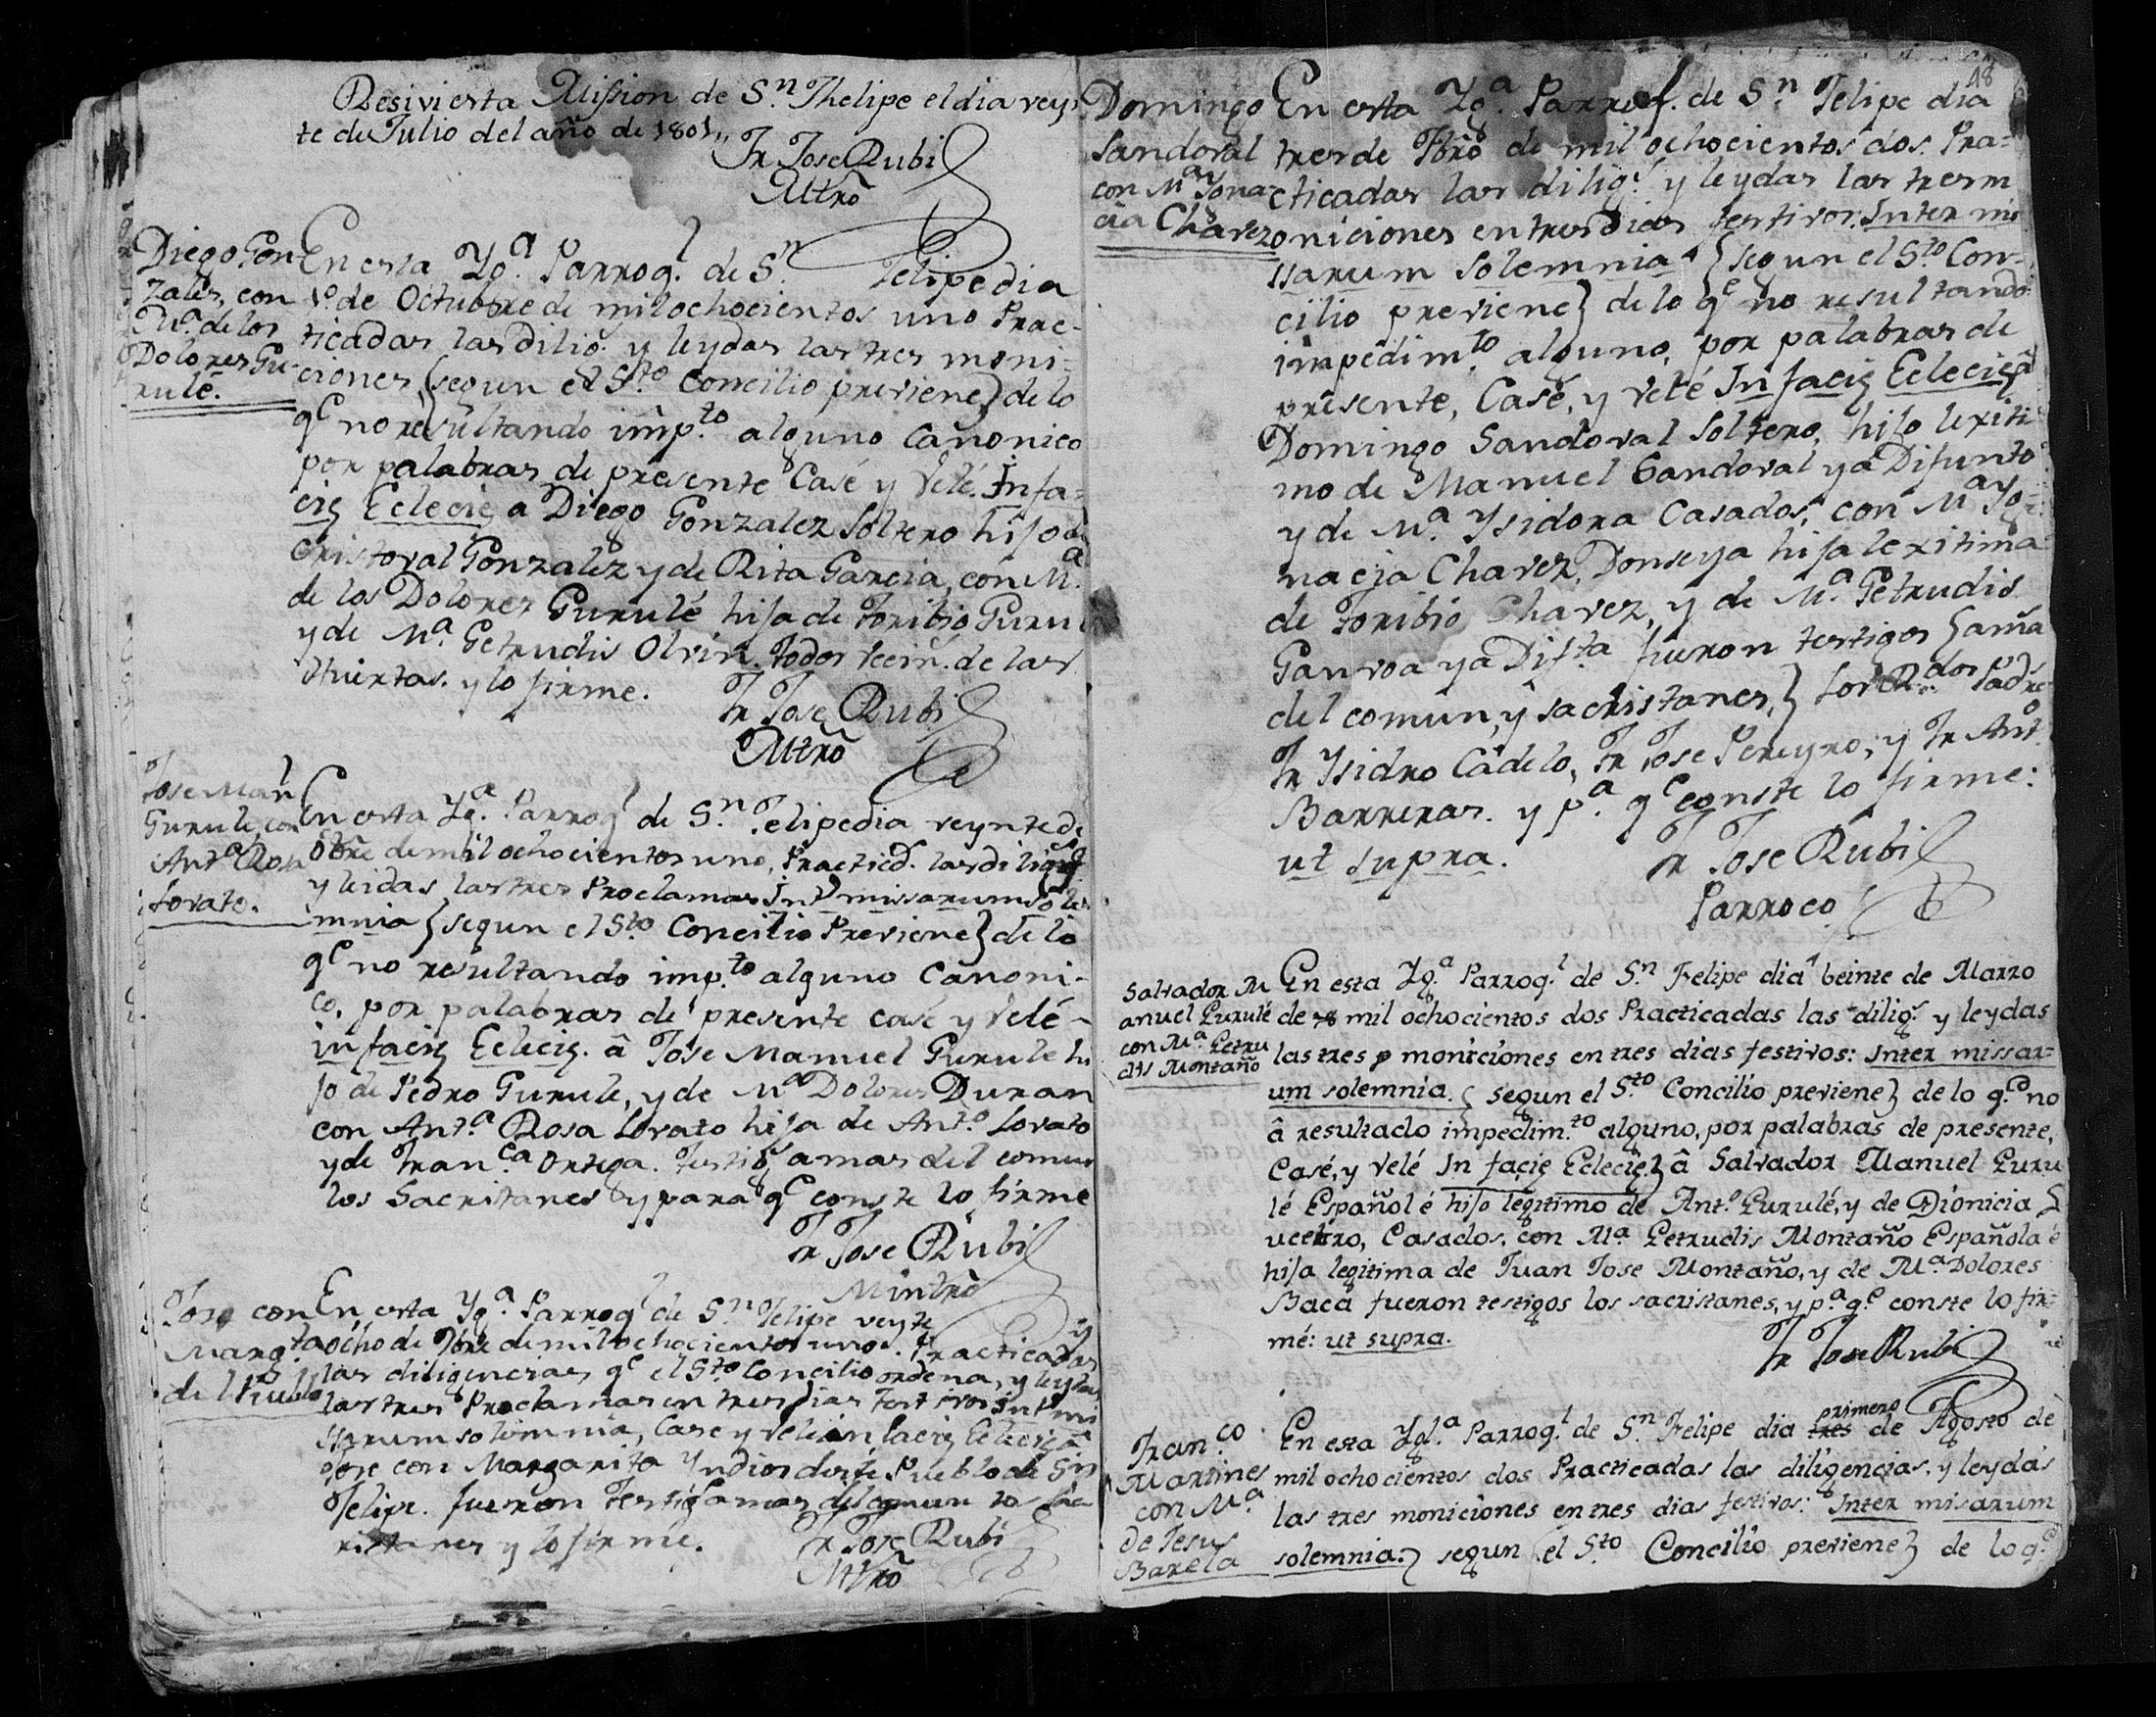 Resivi esta Mission de S.n Phelipe el dia veyn-
te de Julio del año de 1801,,
Fr Jose Rubi
Mtrõ
Diego Gon-
zales, con
M.a de los
Dolores Gu-
rulé.
En esta Yg.a Parroq.l de S.n Felipe dia
1.o de Octubre de mil ochocientos uno Prac-
ticadas las dilig.s y leydas las tres moni-
ciones (segun el S.to Concilio previene) de lo
q.e no resultando imp.to alguno Canonico
por palabras de presente Casé y Velé. Infa-
cie Eclecie a Diego Gonzalez Soltero hijo de
Cristoval Gonzalez y de Rita Garcia, con M.a
de los Dolores Gurulé hija de Toribio Gurul
y de M.a Getrudis Olvin. todos vecin.s de las
Huertas. y lo firme.
Fr Jose Rubi
Mtrõ
Jose Man.l
Gurule, con
Ant.a Rosa
Lovato.
En esta Yg.a Parroq.l de S.n Felipe dia veynte de
Obre de mil ochocientos uno, Practicd.s las dilig.s
y leidas las tres Proclamas Int missarum sole
mnia (segun el S.to Concilio Previene) de lo
q.e no resultando imp.to alguno Canoni-
co, por palabras de presente casé y Velé-
in facie Eclecie. â Jose Manuel Gurule hi
jo de Pedro Gurule, y de M.a Dolores Duran
con Ant.a Rosa Lovato hija de Ant.o Lovato
y de Fran.ca Ortega. Testig.s amas del comun
los Sacristanes y para q.e conste lo firme
Fr Jose Rubi
Mintrõ
Jose con
Marg.ta
del Pueblo
En esta Yg.a Parroq.l de S.n Felipe veyte y
ocho de 9bre de mil ochocientos uno. Practicadas
las diligencias q.e el S.to Concilio ordena, y leydas
las tres Proclamas en tres dias festivos Int mi
sarum solemnia, Case y Velé in facie Eclecie â
Jose con Margarita Yndios deste Pueblo de Sn
Felipe. fueron Testig.s amas del comun los sac
ristanes y lo firme.
Fr Jose Rubi
Mtrõ
48
Domingo
Sandoval
con M.a Ygna-
cia Chavez
En esta Yg.a Parroq.l de S.n Felipe dia
tres de Fbrõ de mil ochocientos dos. Pra-
cticadas las dilig.s y leydas las tres m
oniciones en tres dias festivos: Inter mi
ssarum solemnia. (segun el S.to Con-
cilio previene) de lo q.e no resultando
impedim.to alguno, por palabras de
presente, Casé, y velé In facie Eclecie â
Domingo Sandoval Soltero, hijo lexiti
mo de Manuel Sandoval ya Difunto
y de M.a Ysidora Casados, con M.a Yg-
nacia Chavez, Donseya hija lexitima
de Toribio Chavez, y de M.a Getrudis
Ganvoa ya Dif.ta fueron testigos (amã
del comun, y sacristanes,) los R.dos Padre
Fr Ysidro Cadelo, Fr Jose Pereyro, y Fr Ant.o
Barreras. y p.a q.e conste lo firme:
ut supra.
Fr Jose Rubi
Parroco
Salvador M
anuel Gurulé
con M.a Getru
dis Montaño
En esta Yg.a Parroq.l de S.n Felipe dia beinte de Marzo
de mil ochocientos dos Practicadas las dilig.s y leydas
las tres moniciones en tres dias festivos: Inter missar=
um solemnia. (segun el S.to Concilio previene) de lo q.e no
â resultado impedim.to alguno, por palabras de presente,
Casé, y velé In facie Eclecie.) â Salvador Manuel Guru
lé Español é hijo legitimo de Ant.o Gurulé, y de Dionicia L
ucero, Casados, con M.a Getrudis Montaño Española é
hija legitima de Juan Jose Montaño, y de M.a Dolores
Baca fueron testigos los sacristanes, y p.a q.e conste lo fir-
mé: ut supra.
Fr Jose Rubi
Fran.co
Martines
con M.a
de Jesus
Barela
En esta Ygl.a Parroq.l de S.n Felipe dia tres primero de Agosto de
mil ochocientos dos Practicadas las diligencias, y leydas
las tres moniciones en tres dias festivos: Inter misarum
solemnia.) segun (el S.to Concilio previene) de lo q.e